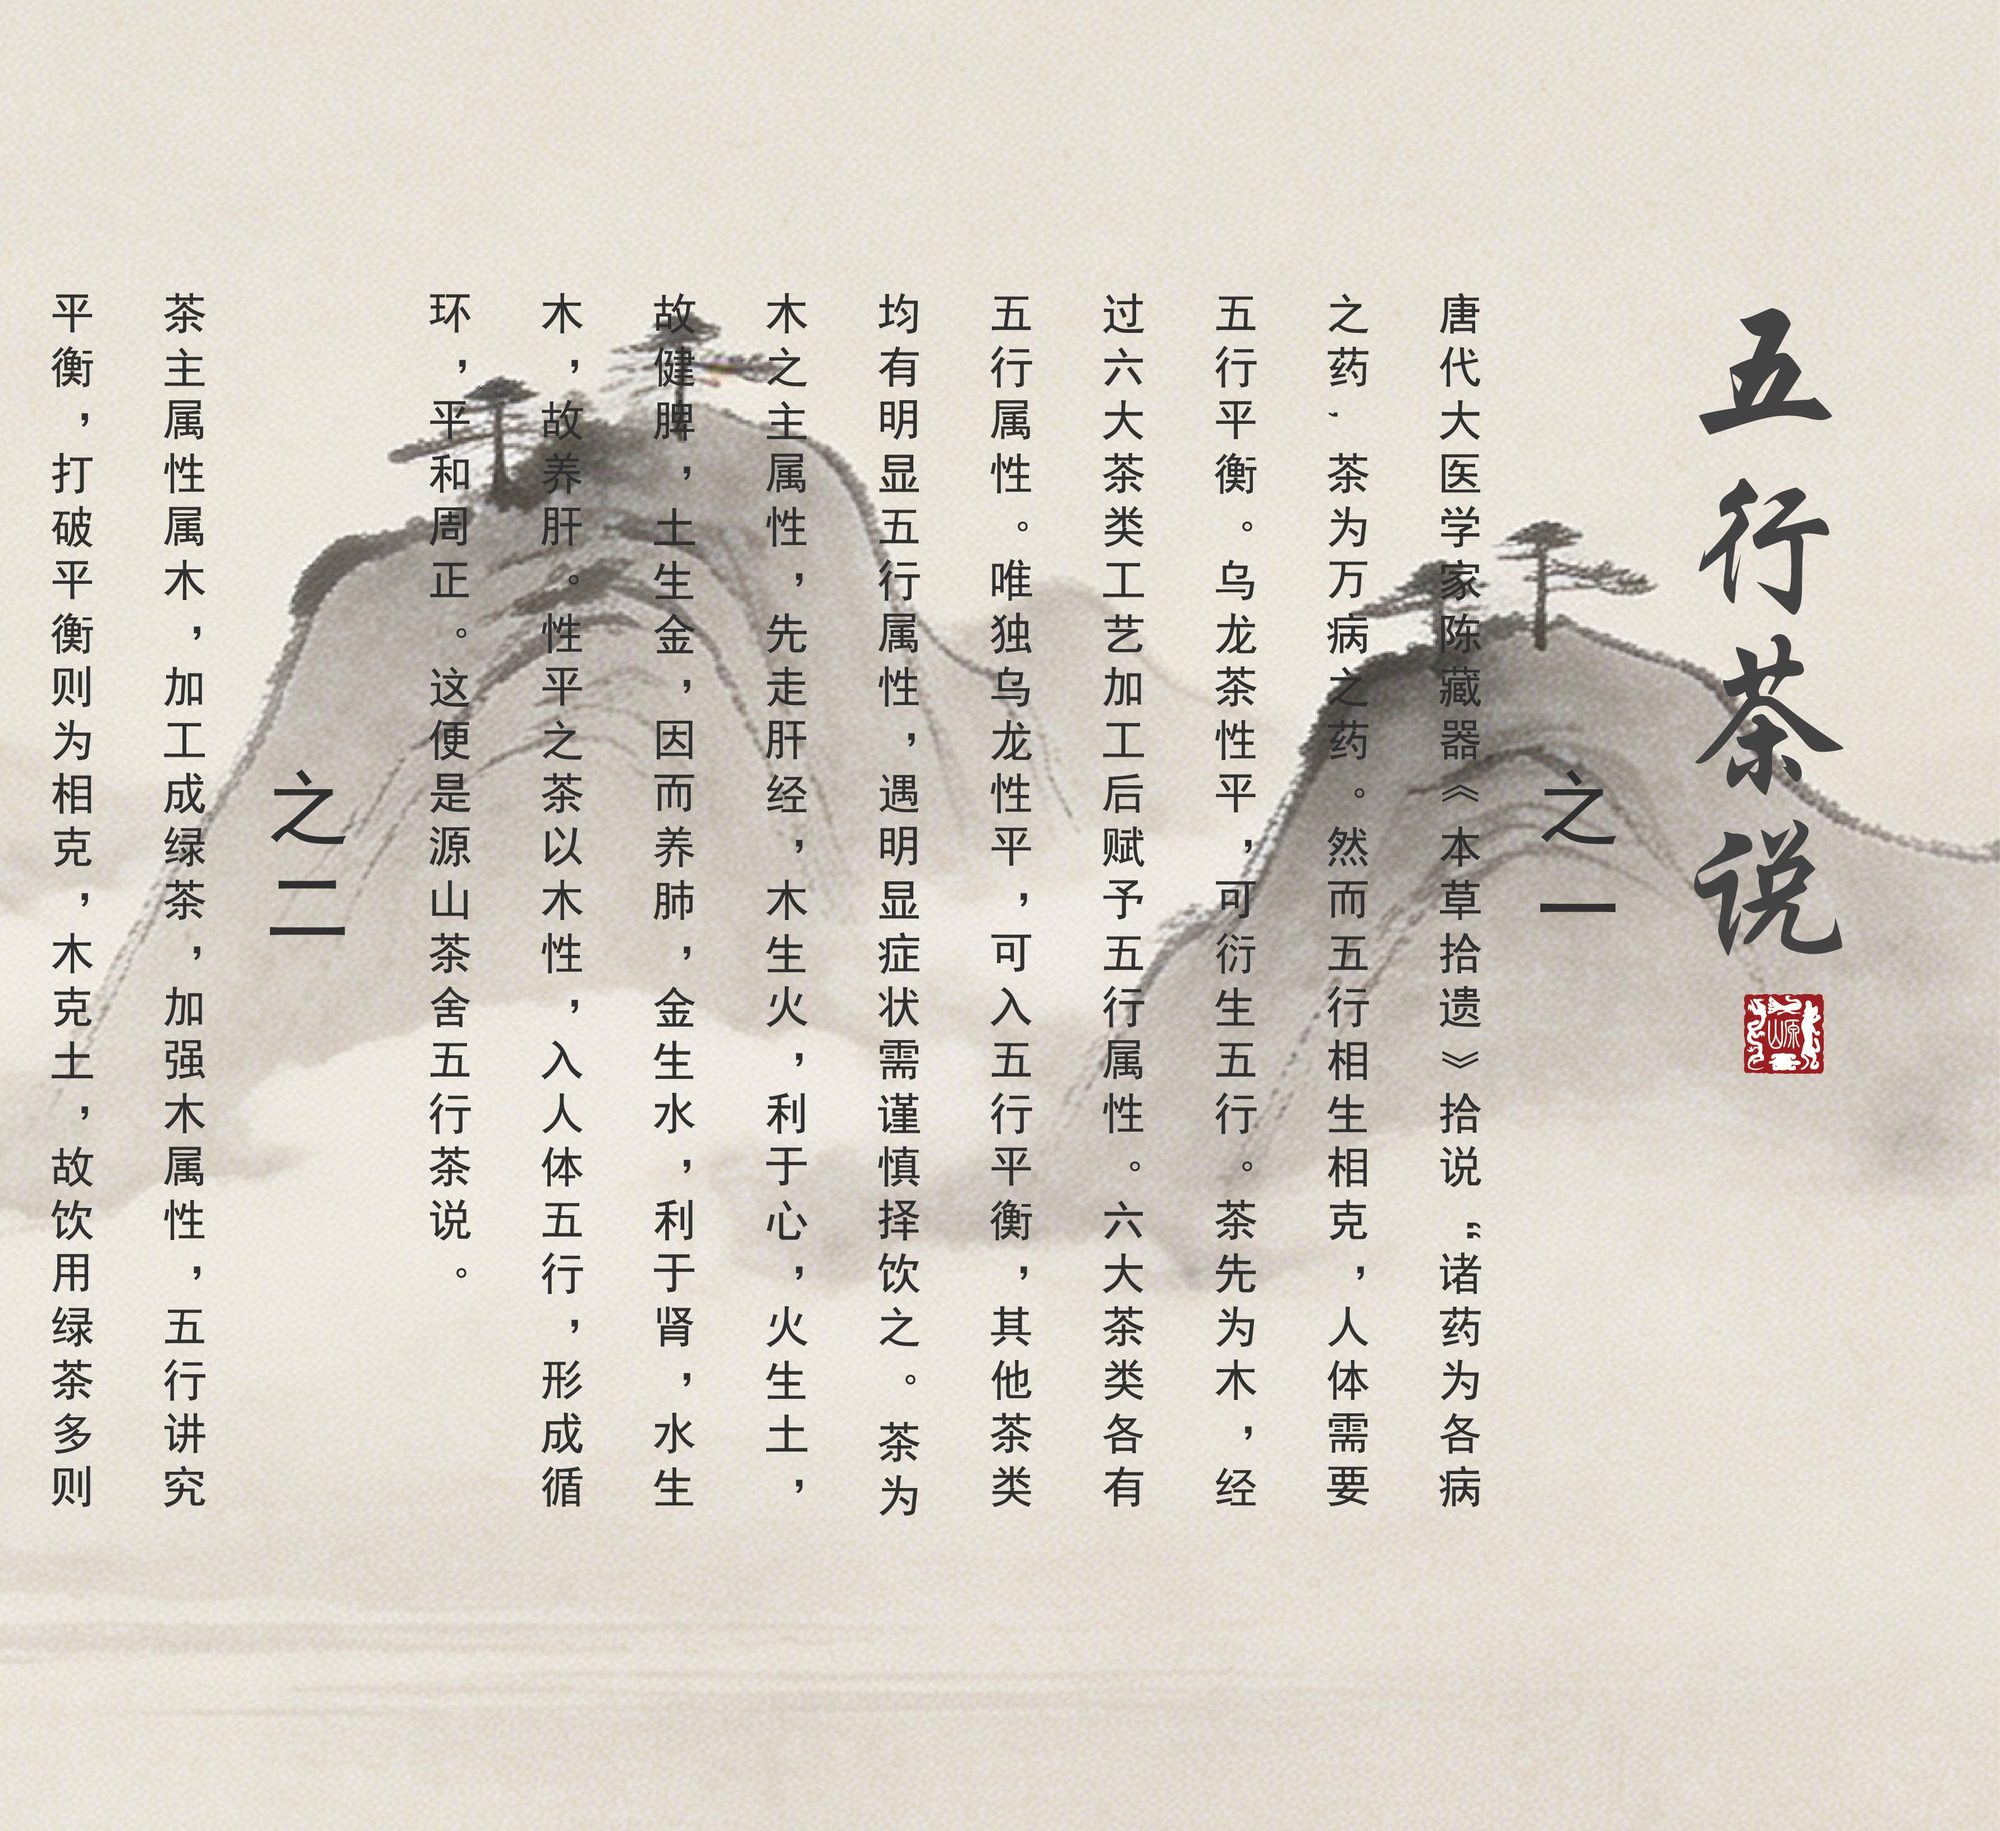 五行茶说
源山
之一
唐代大医学家陈藏器《本草拾遗》拾说“诸药为各病
之药，茶为万病之药。然而五行相生相克，人体需要
五行平衡。乌龙茶性平，可衍生五行。茶先为木，经
过六大茶类工艺加工后赋予五行属性。六大茶类各有
五行属性。唯独乌龙性平，可入五行平衡，其他茶类
均有明显五行属性，遇明显症状需谨慎择饮之。茶为
木之主属性，先走肝经，木生火，利于心，火生土，
故健脾，土生金，因而养肺，金生水，利于肾，水生
木，故养肝。性平之茶以木性，入人体五行，形成循
环，平和周正。这便是源山茶舍五行茶说。
之二
茶主属性属木，加工成绿茶，加强木属性，五行讲究
平衡，打破平衡则为相克，木克土，故饮用绿茶多则